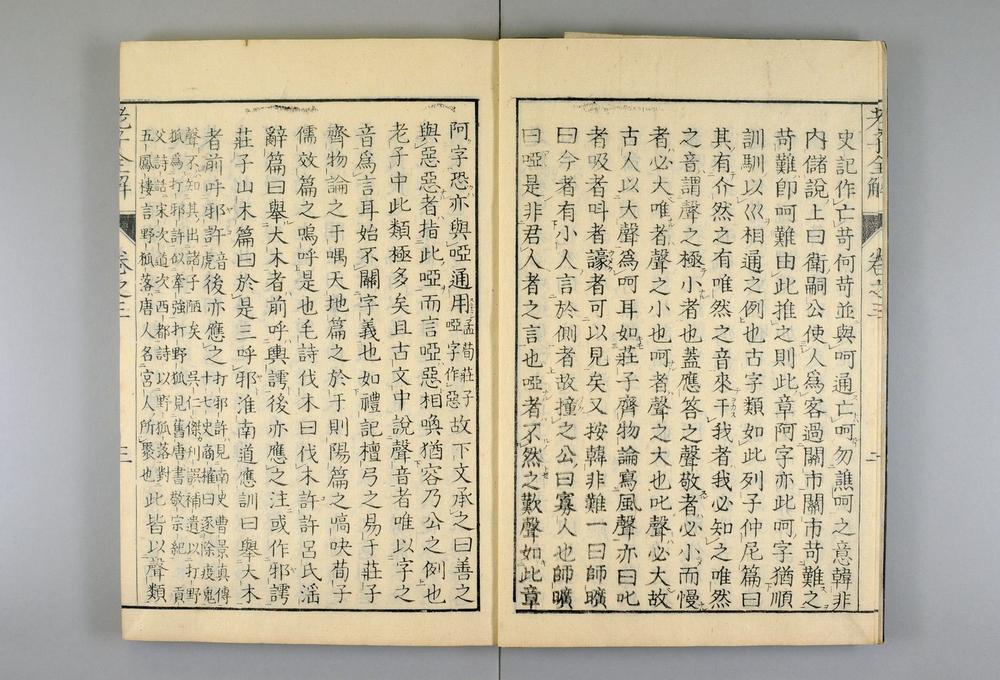 史記作亡苛何苛並與呵通亡呵勿譙呵之意韓非
内儲說上曰衛嗣公使人爲客過關市關市苛難之
苛難卽呵難由此推之則此章阿字亦此呵字猶順
訓馴以巛相通之例也古字類如此列子仲尾篇曰
其有介然之有唯然之音來干我者我必知之唯然
之音謂聲之極小者也蓋應答之聲敬者必小而慢
者必大唯者聲之小也呵者聲之大也叱聲必大故
古人以大聲爲呵耳如莊子齊物論寫風聲亦曰叱
者吸者叫者譹者可以見矣又按韓非難一曰師曠
曰今者有小人言於側者故撞之公曰寡人也師曠
曰啞是非君人者之言也啞者不然之歎聲如此章
阿字恐亦與啞通用孟荀莊子
啞字作惡故下文承之曰善之
與惡惡者指此啞而言啞惡相喚猶容乃公之例也
老子中此類極多矣且古文中說聲音者唯以字之
音爲言耳始不關字義也如禮記檀弓之易于莊子
齊物論之于喁天地篇之於于則陽篇之嗃吷荀子
儒效篇之嗚呼是也毛詩伐木曰伐木許許呂氏淫
辭篇曰舉大木者前呼輿謣後亦應之注或作邪謣
莊子山木篇曰於是三呼邪淮南道應訓曰舉大木
者前呼邪許後亦應之打邪許見南史曹景宗傳
十七史商榷曰逐除疫鬼
聲不知其出諸子陋矣
吳仁傑利誤補遺以打野
狐爲打邪許似牽強打野狐見舊唐書敬宗紀
貢
父詩話宋次道次西都詩以野狐落對
五鳳樓言野狐落唐人名宮人所聚也此皆以聲類
老子全解
卷之三
二
老子全解
卷之三
三